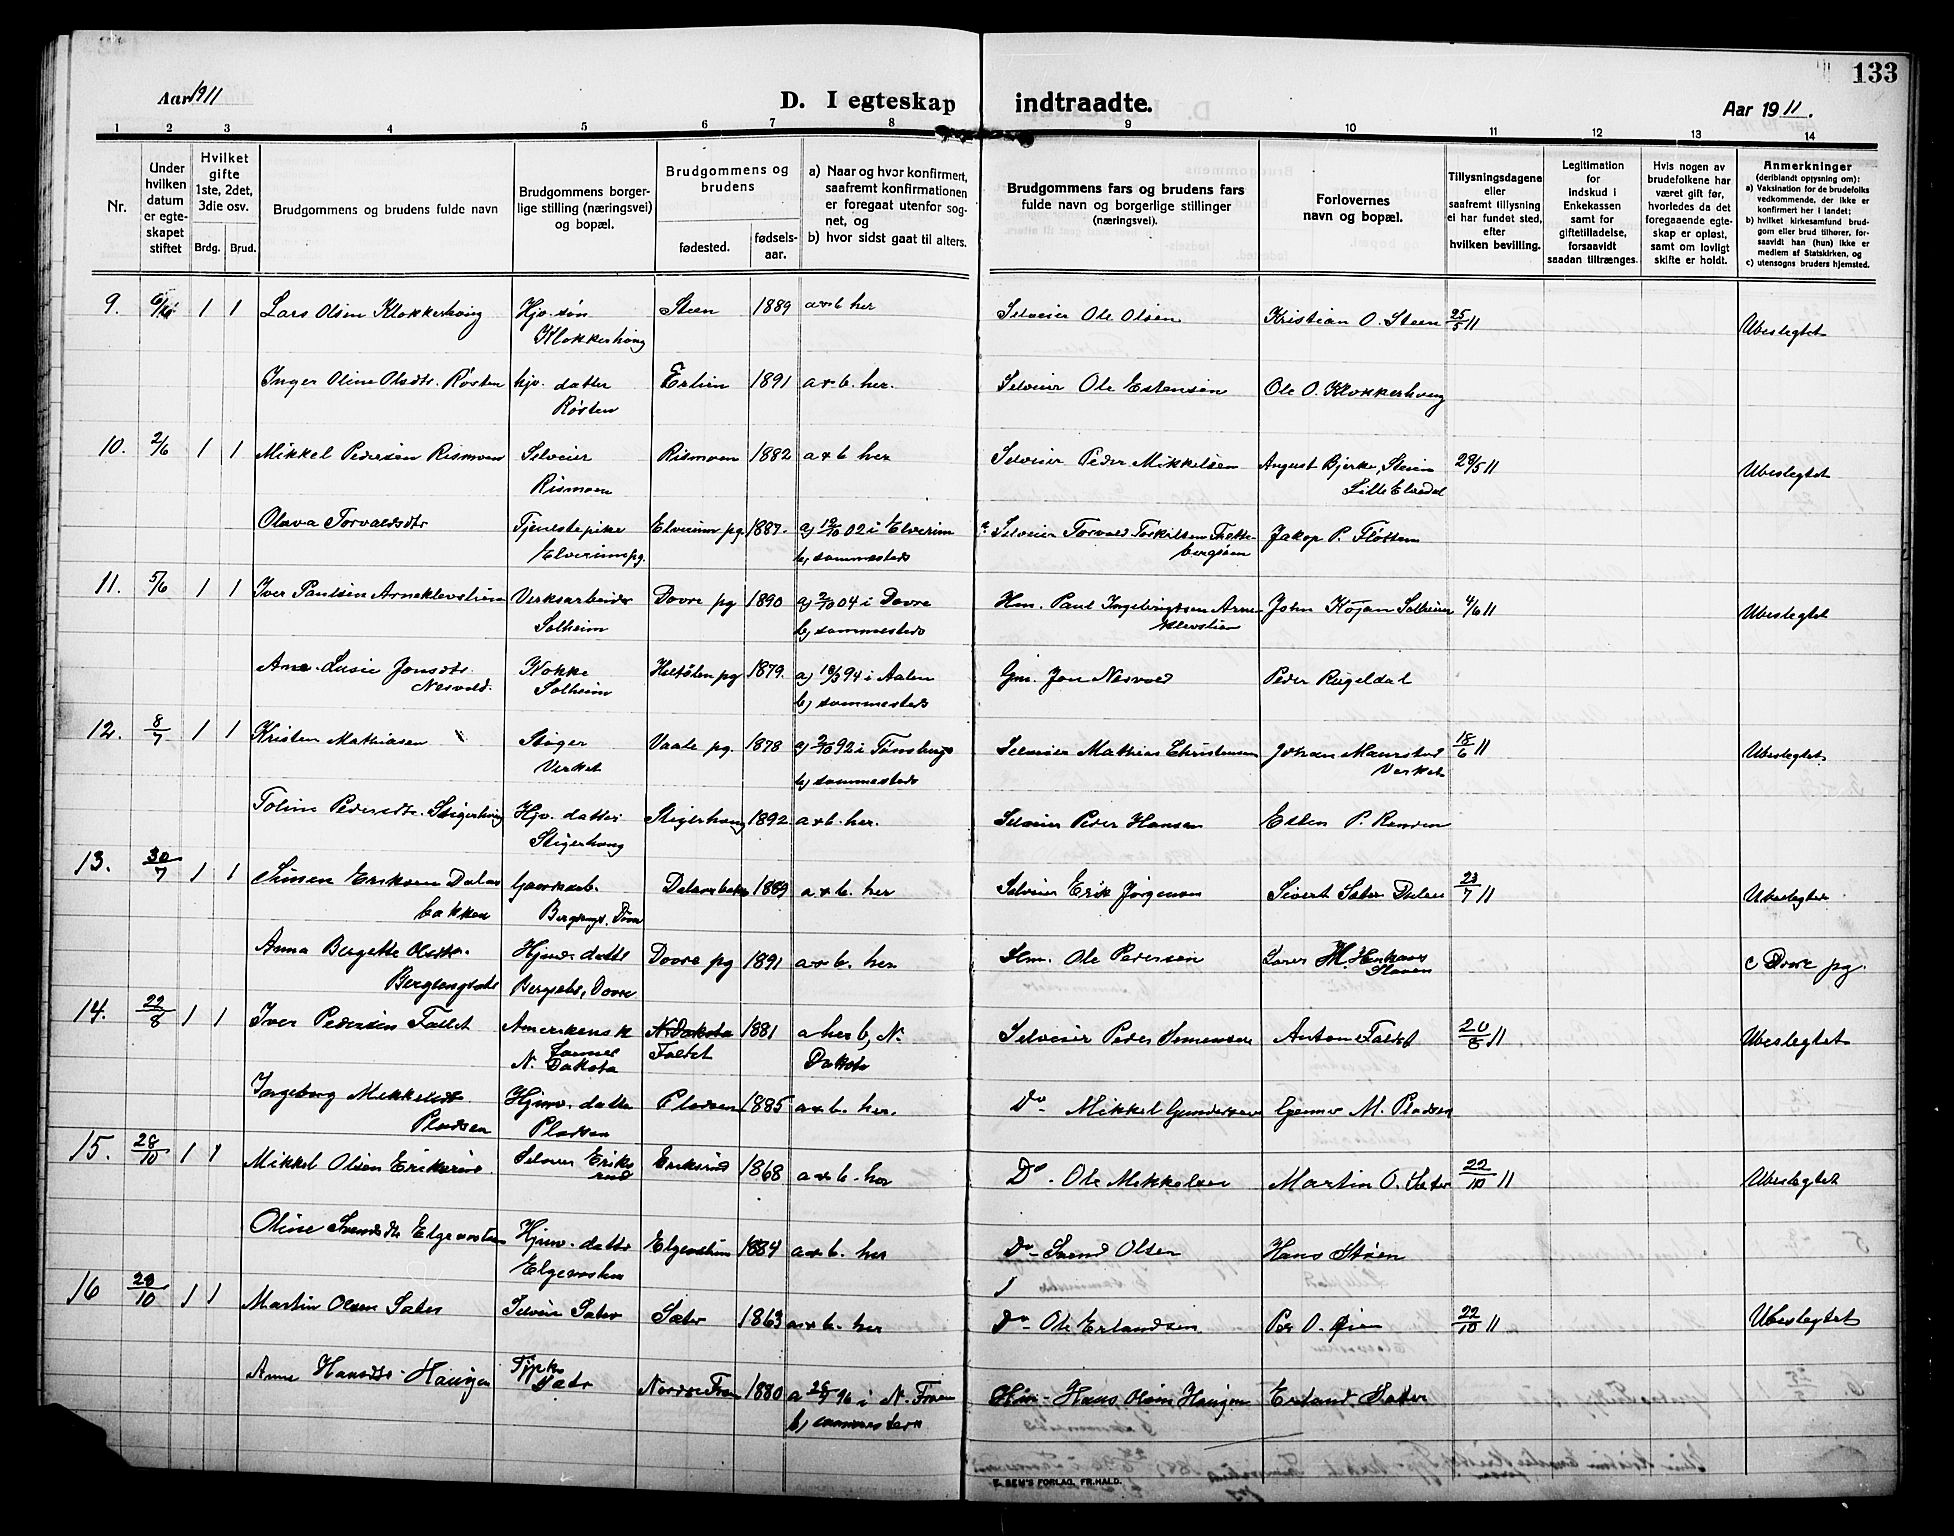 133
Aar 1911
D. I egteskap indtraadte.
Aar 1911.
1 2 3 4 5 6 7 8 9 10 11 12 13 14
Nr.
Under hvilken datum er egteskapet stiftet
Hvilket gifte 1ste, 2det, 3die osv.
Brdg. Brud.
Brudgommens og brudens fulde navn
Brudgommens borgerlige stilling (næringsvei) og bopæl.
Brudgommens og brudens
fødested.
fødselsaar.
a) Naar og hvor konfirmert, saafremt konfirmationen er foregaat utenfor sognet, og
b) hvor sidst gaat til alters.
Brudgommens fars og brudens fars fulde navn og borgerlige stillinger (næringsvei).
Forlovernes navn og bopæl.
Tillysningsdagene eller saafremt tillysning ei har fundet sted, efter hvilken bevilling.
Legitimation for Indskud i Enkekassen samt for giftetilladelse, forsaavidt saadan tiltrænges.
Hvis nogen av brudefolkene har været gift før, hvorledes da det foregaaende egteskap er opløst, samt om lovligt skifte er holdt.
Anmerkninger
(deriblandt opysning om):
a) Vaksination for de brudefolks vedkommende, der ikke er konfirmert her i landet;
b) hvilket kirkesamfund brudgom eller brud tilhører, forsaavidt han (hun) ikke er medlem af Statskirken, og
c) utensogns bruders hjemsted.
9. 6/6 1 1 Lars Olsen Klokkerhaug Hjv. søn Klokkerhaug Steen 1889 a+b her Selveier Ole Olsen Kristian O. Steen 25/5 11 Ubeslegtet
Inger Oline Olsdtr. Røsten hjv. datter Røsten 1891 a+b. her. Selveier Ole Estensen Ole O. Klokkerhaug
10. 2/6 1 1 Mikkel Pedersen Rismoen Selveier Rismoen Rismoen 1882 a+b her Selveier Peder Mikkelsen August Bjerke, Lille Elvedal 28/5 11 Ubeslegtet
Olava Torvaldsdtr Tjenestepike Elverum pg. Elverum pg. 1887. 02 i Elverum b, sammesteds Selveier Torvald Jakop P. Fløtten
11. 5/6 1 1 Iver Paulsen Verksarbeider Solheim Dovre pg 1890 04 i Dovre b, sammesteds Hm. Paul John Kojan Solheim 4/6 11 Ubeslegtet
Ane Lusie Jonsdtr. Nesvold. Kokke Solheim Holtålen pg 1879. 94 i Aalen b, sammesteds Gm. Jon Nesvold Peder Rugeldal
12. 8/7 1 1 Kristen Mathiasen Stiger Verket Vaale pg. 1878 92 i Tønsberg b, sammesteds Selveier Mathias Christensen Johan Verket 18/6 11 Ubeslegtet.
Toline Pedersdtr. Stigerhaug Hjv. datter Stigerhaug Stigerhaug 1892 a+b. her. Selveier Peder Hansen Esten P.
13. 30/7 1 1 Simen Eriksen Dalsbakken 1889 a+b. her Selveier Erik Jørgensen Sivert 23/7 11 Ubeslegtede
Anna Bergette Olsdtr. Hjmv. datter Dovre Dovre pg 1891 a+b. her Hm. Ole Pedersen c Dovre pg.
14. 22/8 1 1 Iver Pedersen Faltet Amerikansk N. Dakota N. Dakota Faltet 1881 a her b, N. Dakota Selveier Peder Simensen Anton Faltet 20/8 11 Ubeslegtet
Ingeborg Mikkelsdtr Pladsen Hjmv. datter Pladsen Pladsen 1885 a+b. her. Do Mikkel Gundersen M. Pladsen
15. 28/10 1 1 Mikkel Olsen Eriksrud. Selveier Eriksrud Eriksrud 1868 a+b. her Do. Ole Mikkelsen Martin O. Sæter 22/10 11 Ubeslegtet
Oline Svendsdtr Hjmv. datter 1884 a+b. her Do Svend Olsen Hans Støen
16 28/10 1 1 Martin Olsen Sæter Selveier Sæter Sæter 1863 a+b. her Do. Ole Erlandsen Per O. Øien 22/10 11 Ubeslegtet
Anne Hansdtr. Haugen Sæter Nordre Fron 1880 96 i N. Fron Hm. Hans Olsen Haugen Erland Sæter
E. SEM'S FORLAG, FR.HALD.